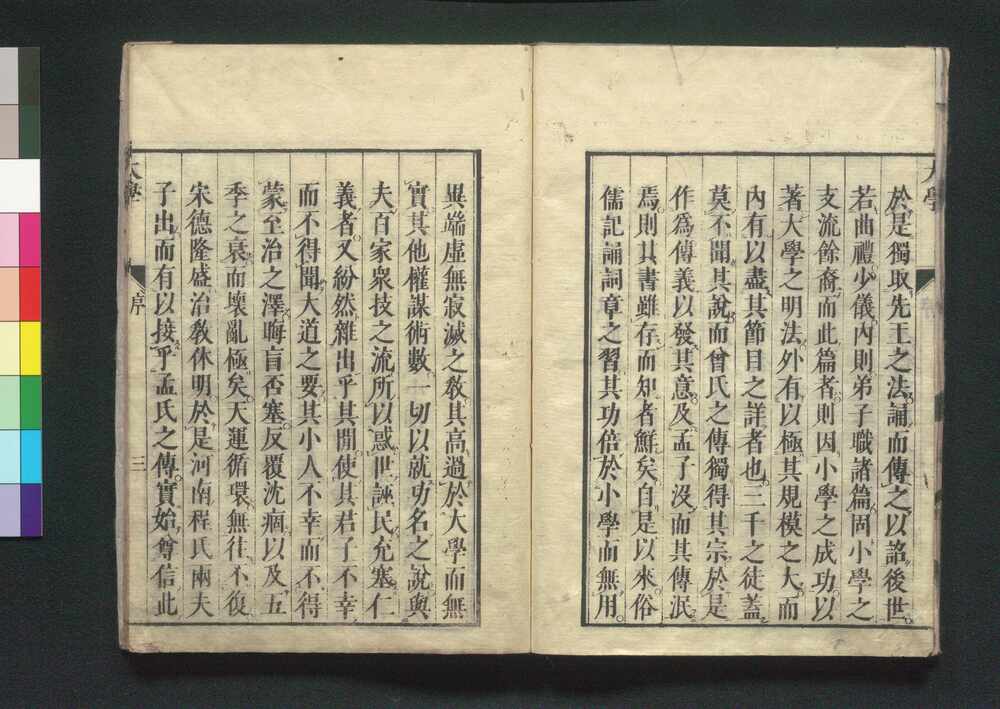 大學
於是獨取先王之法誦而傳之以詔後世
若曲禮少儀內則弟子職諸篇固小學之
支流餘裔而此篇者則因小學之成功以
著大學之明法外有以極其規模之大而
內有以盡其節目之詳者也三千之徒蓋
莫不聞其說而曾氏之傳獨得其宗於是
作爲傳義以發其意及孟子沒而其傳泯
焉則其書雖存而知者鮮矣自是以來俗
儒記誦詞章之習其功倍於小學而無用
異端虛無寂滅之敎其高過於大學而無
實其他權謀術數一切以就功名之說與
夫百家衆技之流所以惑世誣民充塞仁
義者又紛然雜出乎其閒使其君子不幸
而不得聞大道之要其小人不幸而不得
蒙至治之澤晦盲否塞反覆沈痼以及五
季之衰而壞亂極矣天運循環無往不復
宋德隆盛治敎休明於是河南程氏兩夫
子出而有以接乎孟氏之傳實始尊信此
大學 序 三